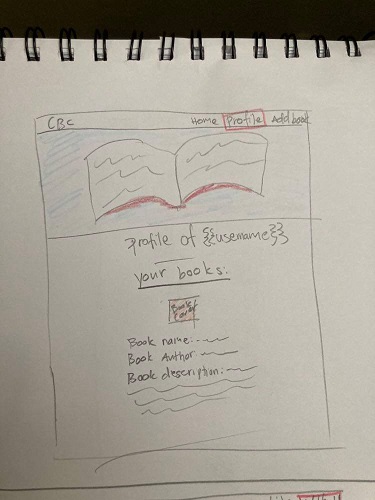 CBC Home Profile Add book
Profile of {{username}}
your books:
Book
Cover
Book name:
Book Author
Book description: